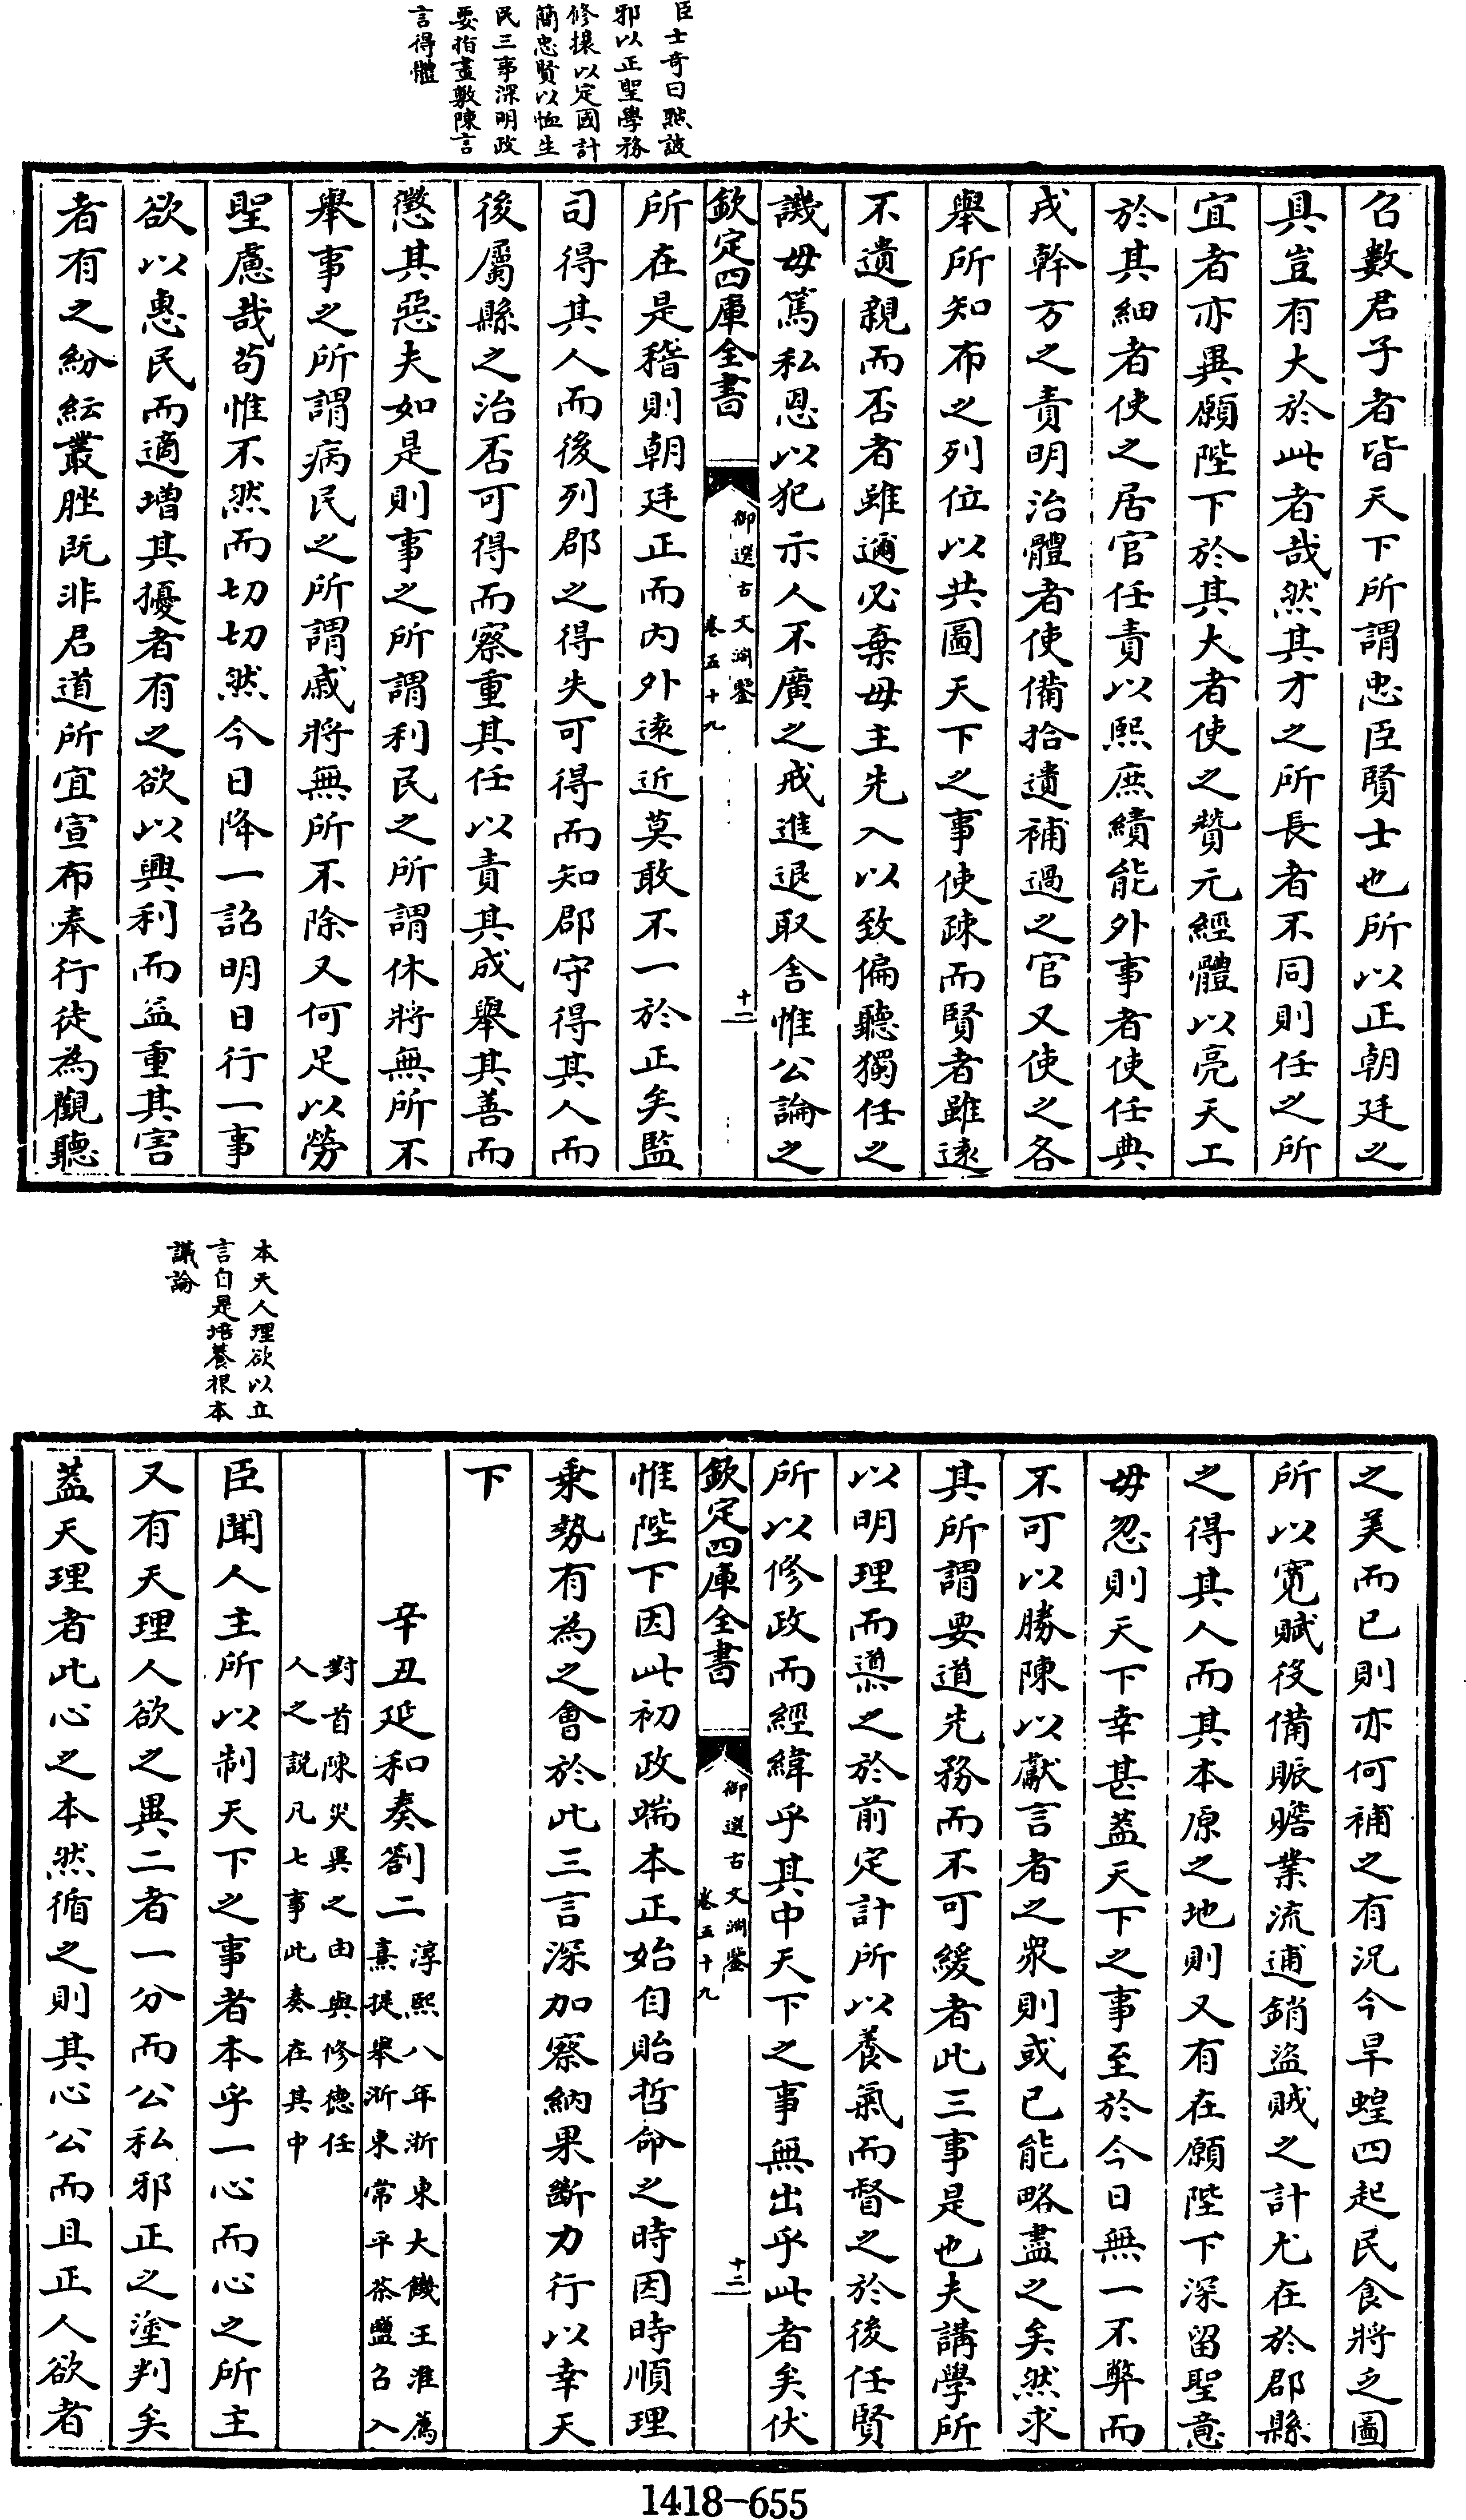 臣士奇曰熙詖
邪以正聖學務
修攘以定國計
簡忠賢以恤生
民三事深明政
要指畫敷陳言
言得體
召數君子者皆天下所謂忠臣賢士也所以正朝廷之
具豈有大於此者哉然其才之所長者不同則任之所
宜者亦異願陛下於其大者使之贊元經體以亮天工
於其細者使之居官任責以熙庶績能外事者使任典
戎幹方之責明治體者使備拾遺補過之官又使之各
舉所知布之列位以共圖天下之事使疎而賢者雖遠
不遺親而否者雖邇必棄毋主先入以致偏聽獨任之
譏毋篤私恩以犯示人不廣之戒進退取舍惟公論之
欽定四庫全書
御選古文淵鑒
卷五十九
十一
所在是稽則朝廷正而內外遠近莫敢不一於正矣監
司得其人而後列郡之得失可得而知郡守得其人而
後屬縣之治否可得而察重其任以責其成舉其善而
懲其惡夫如是則事之所謂利民之所謂休將無所不
舉事之所謂病民之所謂戚將無所不除又何足以勞
聖慮哉茍惟不然而切切然今日降一詔明日行一事
欲以惠民而適增其擾者有之欲以興利而益重其害
者有之紛紜叢脞既非君道所宜宣布奉行徒為觀聽
本天人理欲以立
言自是培養根本
議論
之美而已則亦何補之有況今旱蝗四起民食將乏圖
所以寛賦役備賑贍業流逋銷盜賊之計尤在於郡縣
之得其人而其本原之地則又有在願陛下深留聖意
毋忽則天下幸甚葢天下之事至於今日無一不弊而
不可以勝陳以獻言者之衆則或已能略盡之矣然求
其所謂要道先務而不可緩者此三事是也夫講學所
以明理而導之於前定計所以養氣而督之於後任賢
所以修政而經緯乎其中天下之事無出乎此者矣伏
欽定四庫全書
御選古文淵鑒
卷五十九
十二
惟陛下因此初政端本正始自貽哲命之時因時順理
乗勢有為之會於此三言深加察納果斷力行以幸天
下
辛丑延和奏劄二
淳熙八年浙東大饑王淮薦
熹提舉浙東常平茶鹽召入
對首陳災異之由與修德任
人之說凡七事此奏在其中
臣聞人主所以制天下之事者本乎一心而心之所主
又有天理人欲之異二者一分而公私邪正之塗判矣
葢天理者此心之本然循之則其心公而且正人欲者
1418-655